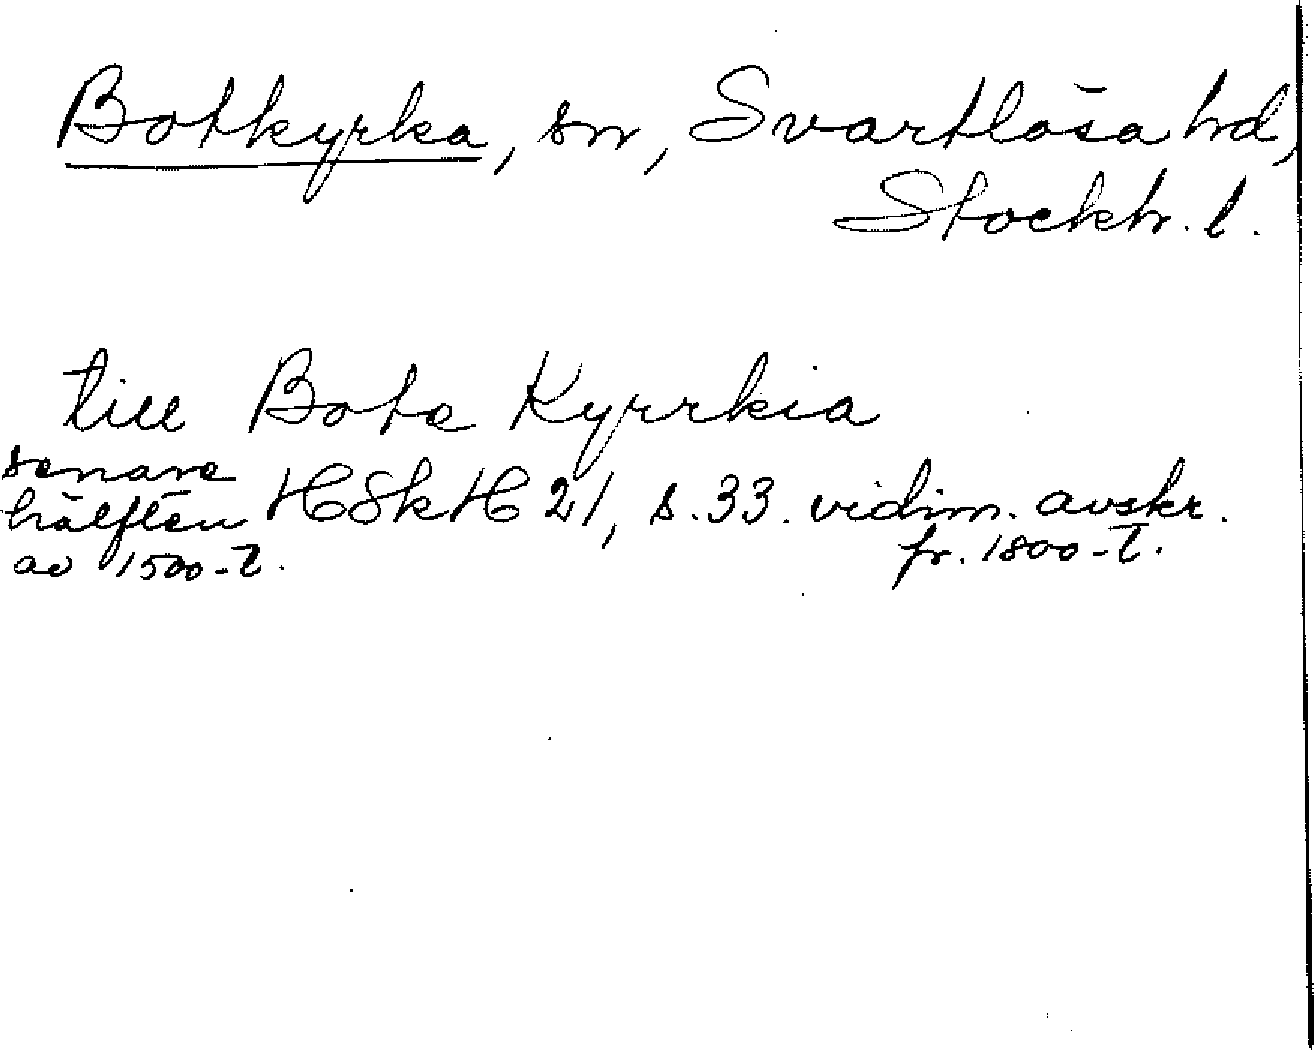 Botkyrka, sn, Svartlösa hd,
Stockh. l.
till Bota Kyrrkia
senare
hälften HSkH 21, s. 33. vidim. avskr.
av 1500-t. fr. 1800-t.